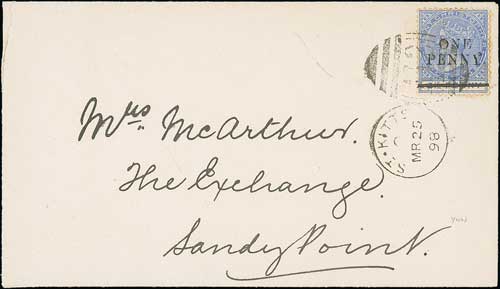 ONE
PENNY.
ST. KITTS
C
MR 25
98
Mrs. McArthur.
The Exchange.
Sandy Point.